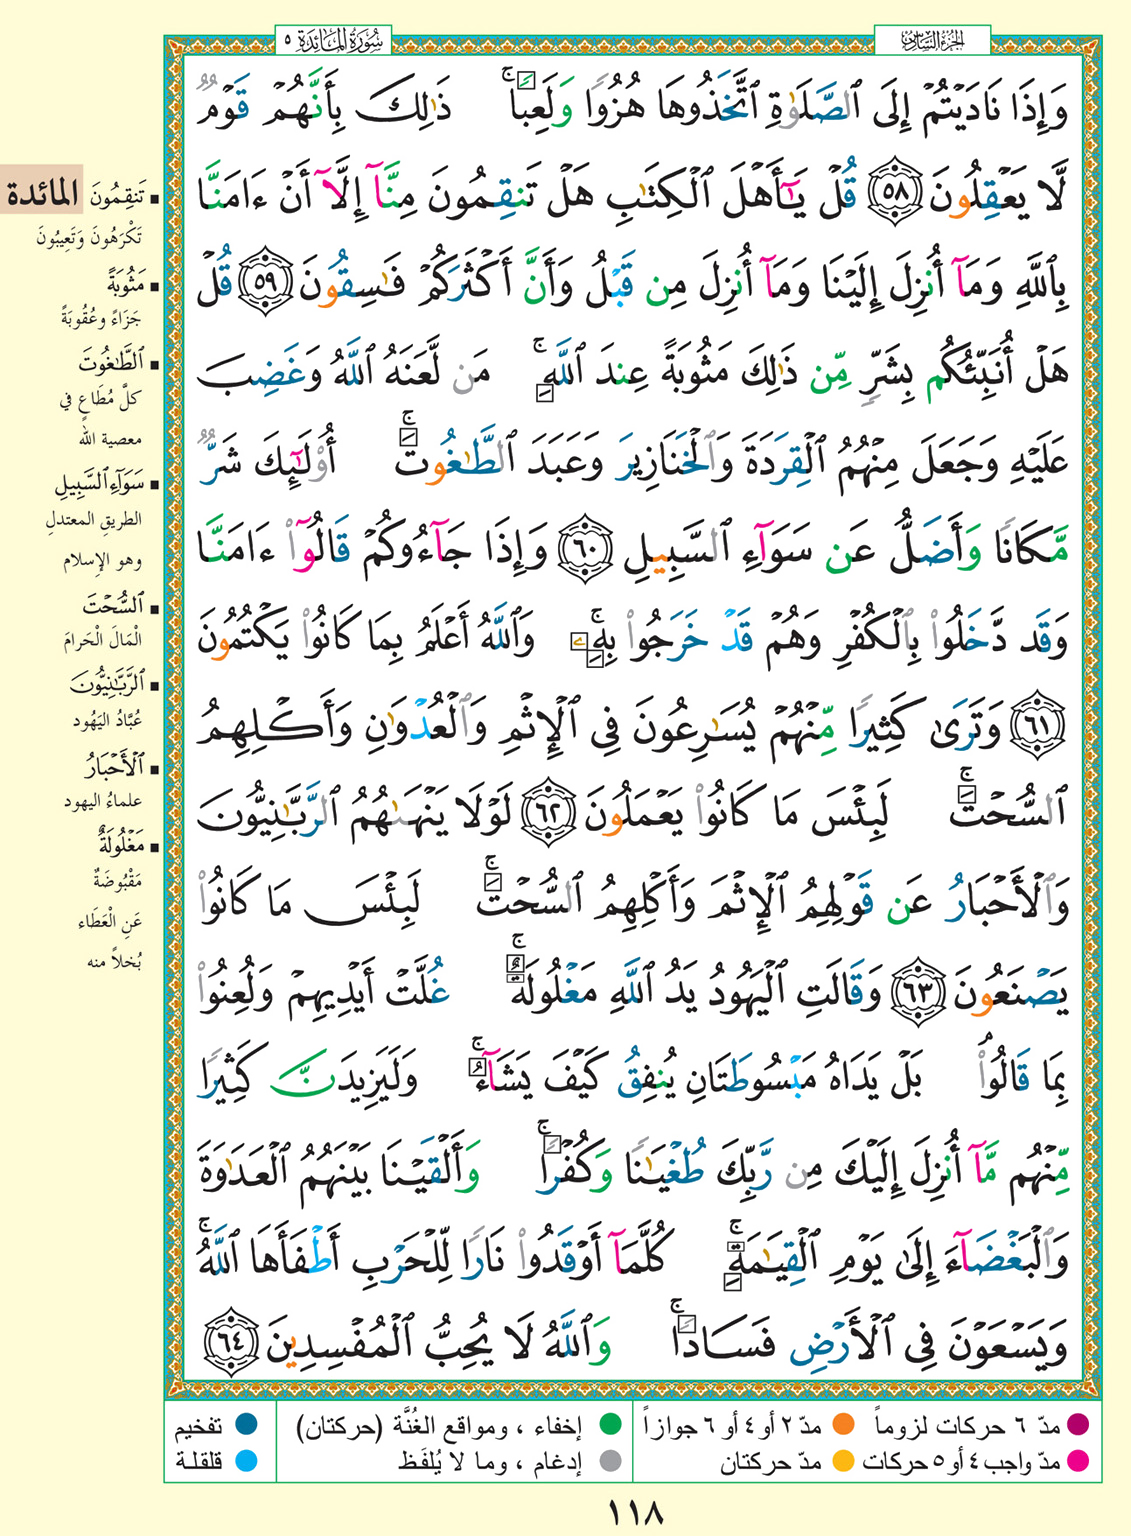 الجزء السادس
سورة المائدة ٥
وَإِذَا نَادَيْتُمْ إِلَى ٱلصَّلَوٰةِ ٱتَّخَذُوهَا هُزُوًا وَلَعِبًا ۚ ذَٰلِكَ بِأَنَّهُمْ قَوْمٌ
لَّا يَعْقِلُونَ ٥٨ قُلْ يَـٰٓأَهْلَ ٱلْكِتَـٰبِ هَلْ تَنقِمُونَ مِنَّآ إِلَّآ أَنْ ءَامَنَّا
بِٱللَّهِ وَمَآ أُنزِلَ إِلَيْنَا وَمَآ أُنزِلَ مِن قَبْلُ وَأَنَّ أَكْثَرَكُمْ فَـٰسِقُونَ ٥٩ قُلْ
هَلْ أُنَبِّئُكُم بِشَرٍّ مِّن ذَٰلِكَ مَثُوبَةً عِندَ ٱللَّهِ ۚ مَن لَّعَنَهُ ٱللَّهُ وَغَضِبَ
عَلَيْهِ وَجَعَلَ مِنْهُمُ ٱلْقِرَدَةَ وَٱلْخَنَازِيرَ وَعَبَدَ ٱلطَّـٰغُوتَ ۚ أُو۟لَـٰٓئِكَ شَرٌّ
مَّكَانًا وَأَضَلُّ عَن سَوَآءِ ٱلسَّبِيلِ ٦٠ وَإِذَا جَآءُوكُمْ قَالُوٓا۟ ءَامَنَّا
وَقَد دَّخَلُوا۟ بِٱلْكُفْرِ وَهُمْ قَدْ خَرَجُوا۟ بِهِۦ ۚ وَٱللَّهُ أَعْلَمُ بِمَا كَانُوا۟ يَكْتُمُونَ
٦١ وَتَرَىٰ كَثِيرًا مِّنْهُمْ يُسَـٰرِعُونَ فِى ٱلْإِثْمِ وَٱلْعُدْوَٰنِ وَأَكْلِهِمُ
ٱلسُّحْتَ ۚ لَبِئْسَ مَا كَانُوا۟ يَعْمَلُونَ ٦٢ لَوْلَا يَنْهَىٰهُمُ ٱلرَّبَّـٰنِيُّونَ
وَٱلْأَحْبَارُ عَن قَوْلِهِمُ ٱلْإِثْمَ وَأَكْلِهِمُ ٱلسُّحْتَ ۚ لَبِئْسَ مَا كَانُوا۟
يَصْنَعُونَ ٦٣ وَقَالَتِ ٱلْيَهُودُ يَدُ ٱللَّهِ مَغْلُولَةٌ ۚ غُلَّتْ أَيْدِيهِمْ وَلُعِنُوا۟
بِمَا قَالُوا۟ ۘ بَلْ يَدَاهُ مَبْسُوطَتَانِ يُنفِقُ كَيْفَ يَشَآءُ ۚ وَلَيَزِيدَنَّ كَثِيرًا
مِّنْهُم مَّآ أُنزِلَ إِلَيْكَ مِن رَّبِّكَ طُغْيَـٰنًا وَكُفْرًا ۚ وَأَلْقَيْنَا بَيْنَهُمُ ٱلْعَدَٰوَةَ
وَٱلْبَغْضَآءَ إِلَىٰ يَوْمِ ٱلْقِيَـٰمَةِ ۚ كُلَّمَآ أَوْقَدُوا۟ نَارًا لِّلْحَرْبِ أَطْفَأَهَا ٱللَّهُ ۚ
وَيَسْعَوْنَ فِى ٱلْأَرْضِ فَسَادًا ۚ وَٱللَّهُ لَا يُحِبُّ ٱلْمُفْسِدِينَ ٦٤
المائدة
▪ تَنقِمُونَ
تَكْرَهُونَ وَتَعِيبُونَ
▪ مَثُوبَةً
جَزَاءً وعُقُوبَةً
▪ ٱلطَّـٰغُوتَ
كلَّ مُطَاعٍ في
معصية الله
▪ سَوَآءِ ٱلسَّبِيلِ
الطريقِ المعتدلِ
وهو الإسلام
▪ ٱلسُّحْتَ
الْمَالَ الْحَرامَ
▪ ٱلرَّبَّـٰنِيُّونَ
عُبَّادُ اليَهُود
▪ ٱلْأَحْبَارُ
علماءُ اليهود
▪ مَغْلُولَةٌ
مَقْبُوضَةٌ
عَنِ الْعَطَاء
بُخلاً منه
مدّ ٦ حركات لزوماً
مدّ ٢ أو ٤ أو ٦ جوازاً
إخفاء ، ومواقع الغُنَّة (حركتان)
تفخيم
مدّ واجب ٤ أو ٥ حركات
مدّ حركتان
إدغام ، وما لا يُلفَظ
قلقلة
١١٨